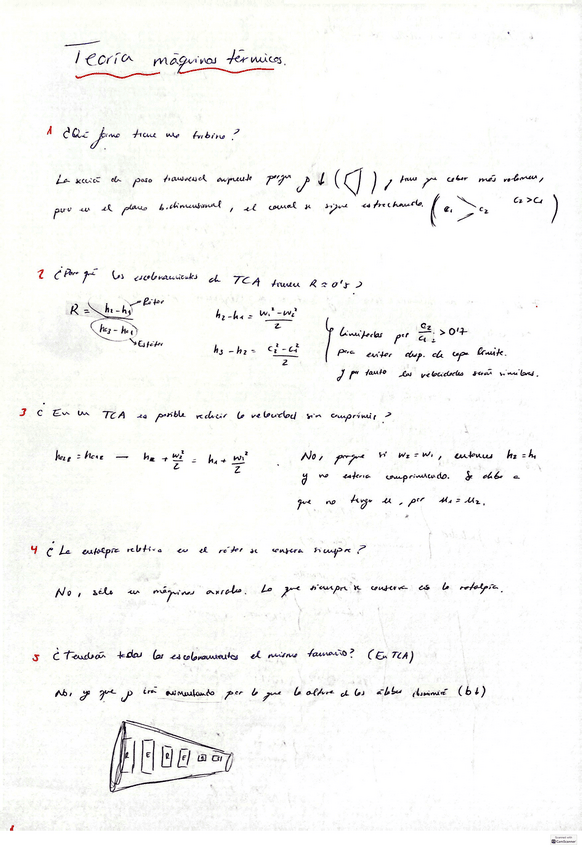 Teoría máquinas térmicas.
1 ¿Qué forma tiene una turbina?
La sección de paso transversal aumenta porque ρ ↓ ( ), tiene que caber más volumen,
pero en el plano bidimensional, el canal se sigue estrechando. ( c₁ > c₂ c₂>c₁ )
2 ¿Por qué los escalonamientos de TCA tienen R=0'5?
R = (h₂-h₁)/(h₃-h₁) → Rótor → Estátor
h₂-h₁ = (w₁²-w₂²)/2
h₃-h₂ = (c₂²-c₁²)/2
limitados por c₂/c₁ > 0'7
para evitar desp. de capa límite.
y por tanto las velocidades serán similares.
3 ¿En un TCA es posible reducir la velocidad sin comprimir?
h₂ + w₂²/2 = h₁ + w₁²/2
No, porque si w₂=w₁, entonces h₂=h₁
y no estaría comprimiendo. Se debe a
que no tengo u, pues u₁=u₂.
4 ¿La entalpía relativa en el rótor se conserva siempre?
No, sólo en máquinas axiales. Lo que siempre se conserva es la rotalpía.
5 ¿Tendrán todos los escalonamientos el mismo tamaño? (En TCA)
No, ya que ρ irá aumentando por lo que la altura de los álabes disminuirá (b↓)
R E R E
CamScanner